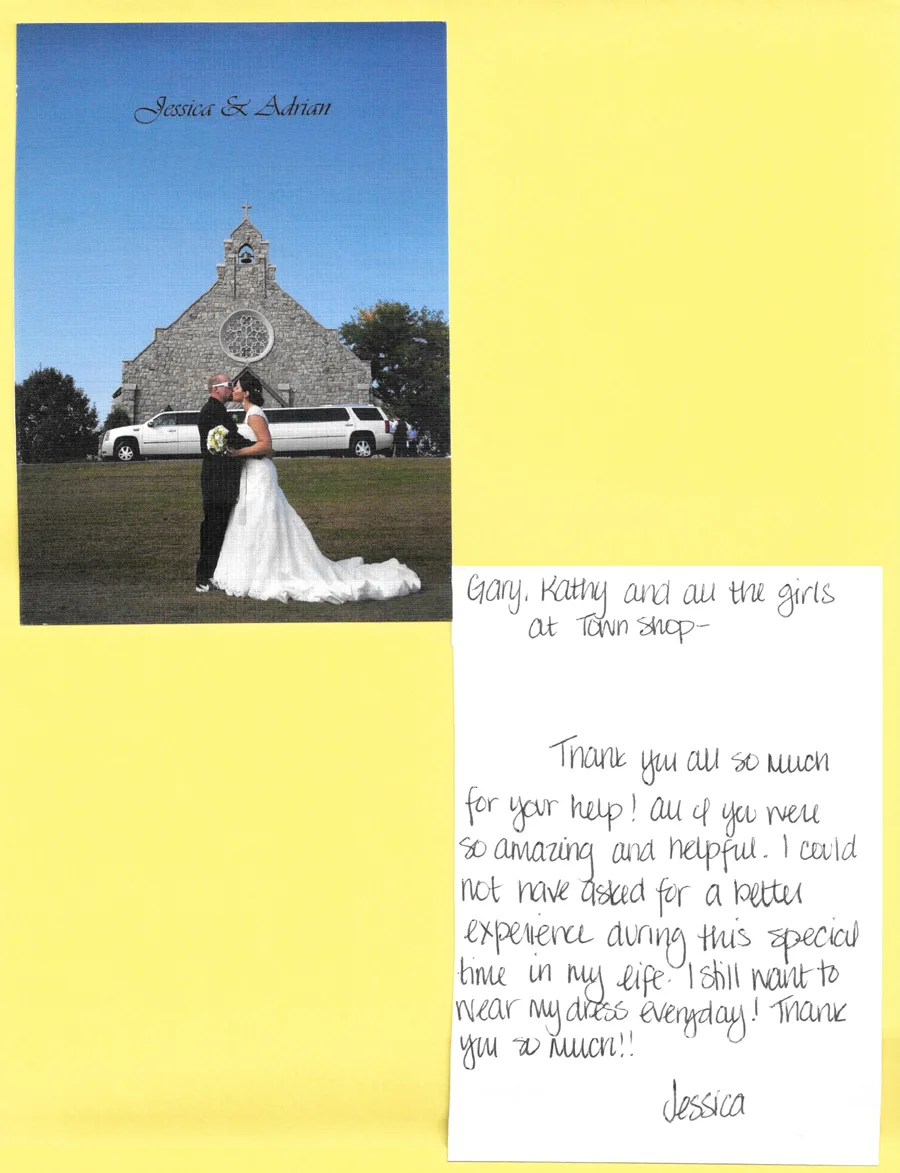 Jessica & Adrian
Gary, Kathy and all the girls
at Town Shop-
Thank you all so much
for your help! All of you were
so amazing and helpful. I could
not have asked for a better
experience during this special
time in my life. I still want to
wear my dress everyday! Thank
you so much!!
Jessica